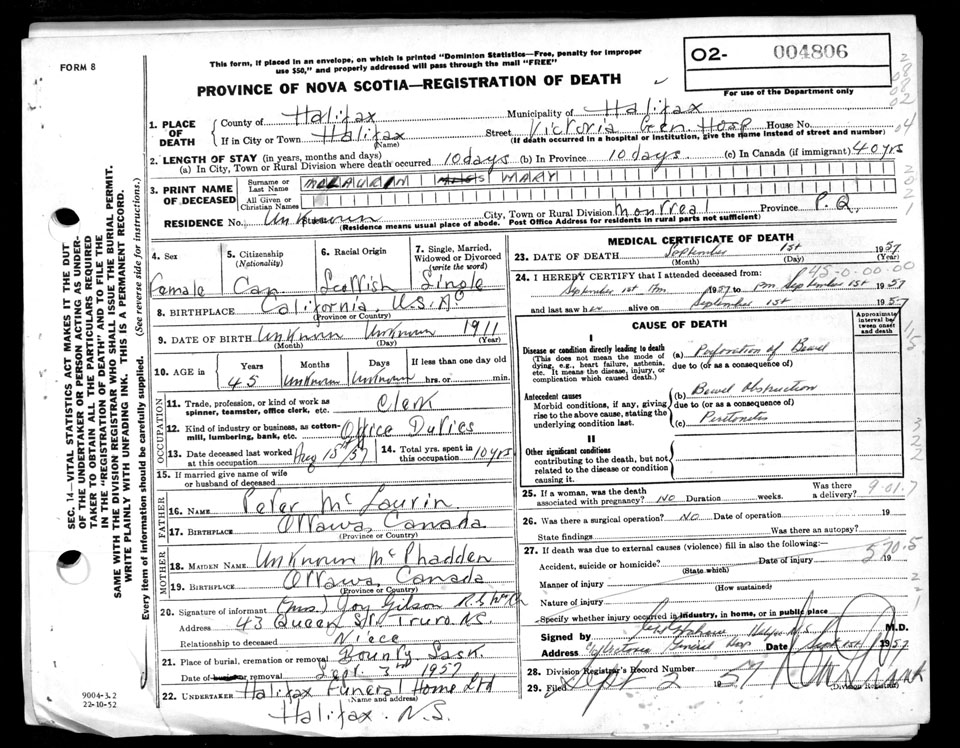 FORM 8
This form, if placed in an envelope, on which is printed "Dominion Statistics—Free, penalty for improper
use $50," and properly addressed will pass through the mail "FREE"
O2- 004806
For use of the Department only
PROVINCE OF NOVA SCOTIA—REGISTRATION OF DEATH
1. PLACE OF DEATH
County of Halifax Municipality of Halifax
If in City or Town Halifax Street Victoria Gen. Hosp House No.
(Name) (If death occurred in a hospital or institution, give the name instead of street and number)
2. LENGTH OF STAY (in years, months and days)
(a) In City, Town or Rural Division where death occurred 10 days (b) In Province 10 days (c) In Canada (if immigrant) 40 yrs
3. PRINT NAME OF DECEASED
Surname or Last Name
All Given or Christian Names
MARY
RESIDENCE No. Unknown City, Town or Rural Division Montreal Province P.Q.
(Residence means usual place of abode. Post Office Address for residents in rural parts not sufficient)
4. Sex
Female
5. Citizenship
(Nationality)
Can.
6. Racial Origin
Scottish
7. Single, Married, Widowed or Divorced
(write the word)
Single
8. BIRTHPLACE California, U.S.A.
(Province or Country)
9. DATE OF BIRTH Unknown Unknown 1911
(Month) (Day) (Year)
10. AGE in
Years Months Days If less than one day old
45 Unknown Unknown hrs. or min.
OCCUPATION
11. Trade, profession, or kind of work as
spinner, teamster, office clerk, etc. Clerk
12. Kind of industry or business, as cotton-
mill, lumbering, bank, etc. Office Duties
13. Date deceased last worked
at this occupation Aug 15th/57
14. Total yrs. spent in
this occupation 10 yrs
15. If married give name of wife
or husband of deceased
FATHER
16. NAME Peter McLaurin
17. BIRTHPLACE Ottawa, Canada
(Province or Country)
MOTHER
18. MAIDEN NAME Unknown McPhadden
19. BIRTHPLACE Ottawa, Canada
(Province or Country)
20. Signature of informant (Mrs.) Joy Gilson
Address 43 Queen St. Truro N.S.
Relationship to deceased Niece
21. Place of burial, cremation or removal Bounty Sask.
Date of burial or removal Sept. 3rd 1957
22. UNDERTAKER Halifax Funeral Home Ltd
(Name and address)
Halifax. N.S.
MEDICAL CERTIFICATE OF DEATH
23. DATE OF DEATH September 1st 1957
(Month) (Day) (Year)
24. I HEREBY CERTIFY that I attended deceased from:
September 1st 1957 to September 1st 1957
and last saw her alive on September 1st 1957
Approximate interval between onset and death
CAUSE OF DEATH
I
Disease or condition directly leading to death
(This does not mean the mode of dying, e.g., heart failure, asthenia, etc. It means the disease, injury, or complication which caused death.)
(a) Perforation of Bowel
due to (or as a consequence of)
Antecedent causes
Morbid conditions, if any, giving rise to the above cause, stating the underlying condition last.
(b) Bowel Obstruction
due to (or as a consequence of)
(c) Peritonitis
II
Other significant conditions
contributing to the death, but not related to the disease or condition causing it.
25. If a woman, was the death
associated with pregnancy? NO Duration weeks. Was there a delivery?
9-01.7
26. Was there a surgical operation? NO Date of operation 19
State findings Was there an autopsy?
27. If death was due to external causes (violence) fill in also the following:
Accident, suicide or homicide? Date of injury 19
(State which)
570.5
Manner of injury
(How sustained)
Nature of injury
Specify whether injury occurred in industry, in home, or in public place
Signed by M.D.
Address Victoria General Hosp Date Sept 1st 1957
28. Division Registrar's Record Number
29. Filed Sept 2 57
(Division Registrar)
SEC. 14—VITAL STATISTICS ACT MAKES IT THE DUTY
OF THE UNDERTAKER OR PERSON ACTING AS UNDER-
TAKER TO OBTAIN ALL THE PARTICULARS REQUIRED
IN THE "REGISTRATION OF DEATH" AND TO FILE THE
SAME WITH THE DIVISION REGISTRAR WHO SHALL ISSUE THE BURIAL PERMIT.
WRITE PLAINLY WITH UNFADING INK. THIS IS A PERMANENT RECORD.
Every item of information should be carefully supplied. (See reverse side for instructions.)
9004-3.2
22-10-52